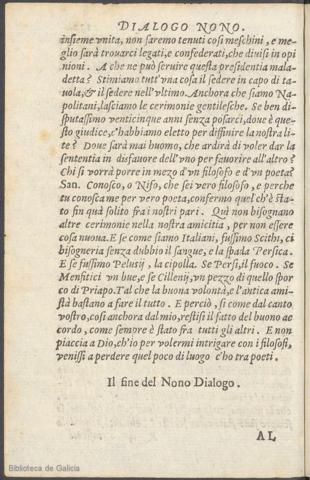 DIALOGO NONO.
insieme vnita, non saremo tenuti cosi meschini, e me-
glio sarà trouarci legati, e confederati, che diuisi in opi
nioni. A che ne può seruire questa presidentia mala-
detta? Stimiamo tutt'vna cosa il sedere in capo di ta-
uola, & il sedere nell'vltimo. Anchora che siamo Na-
politani, lasciamo le cerimonie gentilesche. Se ben di-
sputassimo venticinque anni senza posarci, doue è que-
sto giudice, c'habbiamo eletto per diffinire la nostra li-
te? Doue sarà mai huomo, che ardirà di voler dar la
sententia in disfauore dell'vno per fauorire all'altro?
Chi si vorrà porre in mezo d'vn filosofo e d'vn poeta?
San. Conosco, o Niso, che sei vero filosofo, e perche
tu conosca me per vero poeta, confermo quel ch'è sta-
to fin quà solito fra i nostri pari. Quì non bisognano
altre cerimonie nella nostra amicitia, per non essere
cosa nuoua. E se come siamo Italiani, fussimo Scithi, ci
bisogneria senza dubbio il sangue, e la spada Persica.
E se fussimo Pelutij, la cipolla. Se Persi, il fuoco. Se
Mensitici vn bue, e se Cillenij, vn pezzo di quello spor
co di Priapo. Tal che la buona volontà, e l'antica ami-
stà bastano a fare il tutto. E perciò, si come dal canto
vostro, cosi anchora dal mio, restisi il fatto del buono ac
cordo, come sempre è stato fra tutti gli altri. E non
piaccia a Dio, ch'io per volermi intrigare con i filosofi,
venissi a perdere quel poco di luogo c'ho tra poeti.
Il fine del Nono Dialogo.
AL
Biblioteca de Galicia